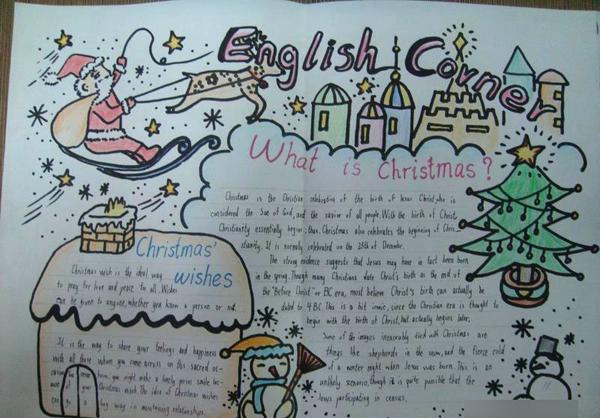 English Corner
What is Christmas?
Christmas is the Christian celebration of the birth of Jesus Christ, who is
considered the Son of God, and the savior of all people. With the birth of Christ
Christianty essentially begins; thus, Christmas also celebrates the beginning of Chris
stianity. It is normally celebrated on the 25th of December.
The strong evidence suggests that Jesus may have in fact been born
in the spring. Though many Christians date Christ's birth as the end of
the "Before Christ" or BC era, most believe Christ's birth can actually be
dated to 4 BC. This is a bit ironic, since the Christian era is thought to
begin with the birth of Christ, but actually begins later.
Some of the images inexorably tied with Christmas are
things like shepherds in the snow, and the fierce cold
of a winter night when Jesus was born. This is an
unlikely scenario, though it is quite possible that the
Jews participating in census.
Christmas' wishes
Christmas wish is the ideal way
to pray for love and peace to all. Wishes
can be given to anyone, whether you know a person or not.
It is the way to share your feelings and happiness
with all those whom you come across on this sacred oc-
you might make a lonely person smile be-
of your Christmas wish. The idea of Christmas wishes
way in maintaining relationships.